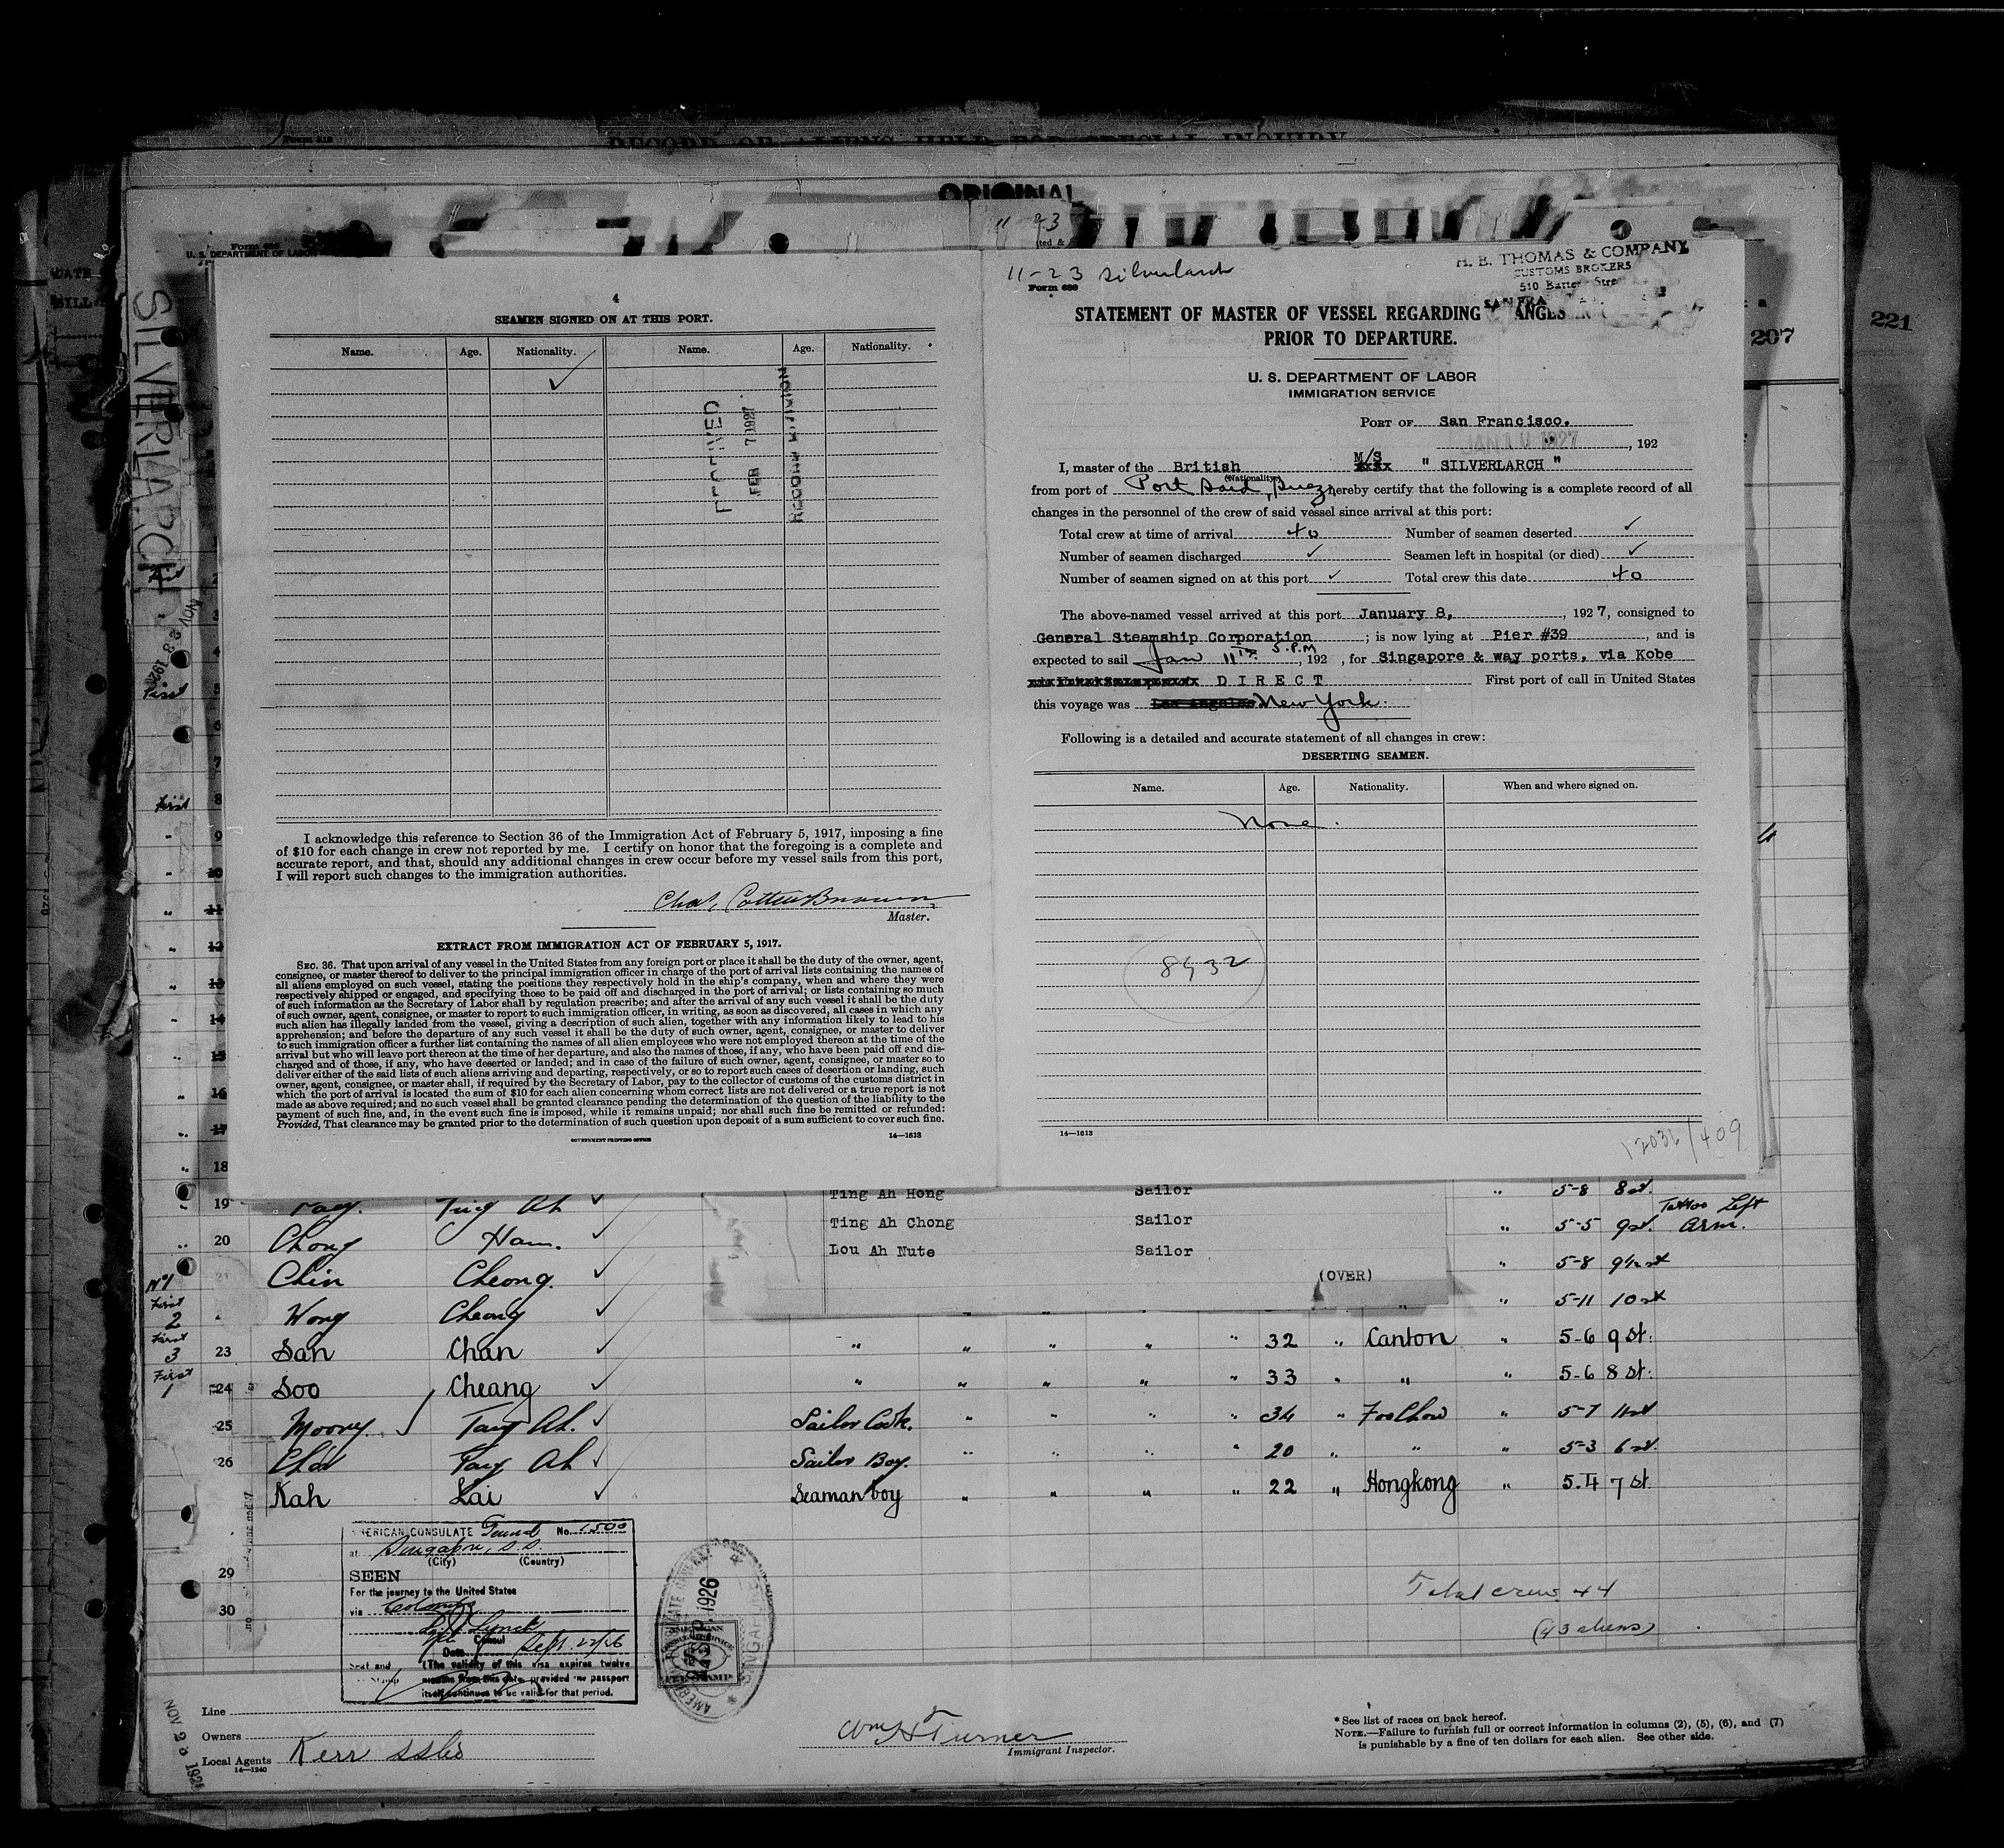 Form 618
RECORD OF ALIENS HELD FOR SPECIAL INQUIRY
ORIGINAL
Form 689
U. S. DEPARTMENT OF LABOR
207
221
SILVERLARCH
4
SEAMEN SIGNED ON AT THIS PORT.
Name. Age. Nationality. Name. Age. Nationality.
RECEIVED
FEB 7 1927
RECORD DIVISION
I acknowledge this reference to Section 36 of the Immigration Act of February 5, 1917, imposing a fine
of $10 for each change in crew not reported by me. I certify on honor that the foregoing is a complete and
accurate report, and that, should any additional changes in crew occur before my vessel sails from this port,
I will report such changes to the immigration authorities.
Chas. Cotten Brown
Master.
EXTRACT FROM IMMIGRATION ACT OF FEBRUARY 5, 1917.
SEC. 36. That upon arrival of any vessel in the United States from any foreign port or place it shall be the duty of the owner, agent,
consignee, or master thereof to deliver to the principal immigration officer in charge of the port of arrival lists containing the names of
all aliens employed on such vessel, stating the positions they respectively hold in the ship's company, when and where they were
respectively shipped or engaged, and specifying those to be paid off and discharged in the port of arrival; or lists containing so much
of such information as the Secretary of Labor shall by regulation prescribe; and after the arrival of any such vessel it shall be the duty
of such owner, agent, consignee, or master to report to such immigration officer, in writing, as soon as discovered, all cases in which any
such alien has illegally landed from the vessel, giving a description of such alien, together with any information likely to lead to his
apprehension; and before the departure of any such vessel it shall be the duty of such owner, agent, consignee, or master to deliver
to such immigration officer a further list containing the names of all alien employees who were not employed thereon at the time of the
arrival but who will leave port thereon at the time of her departure, and also the names of those, if any, who have been paid off and dis-
charged and of those, if any, who have deserted or landed; and in case of the failure of such owner, agent, consignee, or master so to
deliver either of the said lists of such aliens arriving and departing, respectively, or so to report such cases of desertion or landing, such
owner, agent, consignee, or master shall, if required by the Secretary of Labor, pay to the collector of customs of the customs district in
which the port of arrival is located the sum of $10 for each alien concerning whom correct lists are not delivered or a true report is not
made as above required; and no such vessel shall be granted clearance pending the determination of the question of the liability to the
payment of such fine, and, in the event such fine is imposed, while it remains unpaid; nor shall such fine be remitted or refunded:
Provided, That clearance may be granted prior to the determination of such question upon deposit of a sum sufficient to cover such fine.
GOVERNMENT PRINTING OFFICE 14—1613
11-23 Silverlarch
Form 689
H. B. THOMAS & COMPANY
CUSTOMS BROKERS
510 Battery Stre
SAN FRA
STATEMENT OF MASTER OF VESSEL REGARDING ANGES
PRIOR TO DEPARTURE.
U. S. DEPARTMENT OF LABOR
IMMIGRATION SERVICE
PORT OF San Francisco.
JAN 10 1927, 192
I, master of the British M/S " SILVERLARCH "
(Nationality.)
from port of Port Said, Suez, hereby certify that the following is a complete record of all
changes in the personnel of the crew of said vessel since arrival at this port:
Total crew at time of arrival 40 Number of seamen deserted ✓
Number of seamen discharged ✓ Seamen left in hospital (or died) ✓
Number of seamen signed on at this port ✓ Total crew this date 40
The above-named vessel arrived at this port January 8, , 1927, consigned to
General Steamship Corporation ; is now lying at Pier #39 , and is
expected to sail Jan 11th 5.P.M , 192 , for Singapore & way ports, via Kobe
DIRECT First port of call in United States
this voyage was Los Angeles New York.
Following is a detailed and accurate statement of all changes in crew:
DESERTING SEAMEN.
Name. Age. Nationality. When and where signed on.
None.
8932
14—1613
12036/409
Ting Ah Hong Sailor " 5-8 8st.
19 Ting Ah ✓
Ting Ah Chong Sailor " 5-5 9st. Tattoo Left Arm.
20 Chong Ham. ✓
Lou Ah Nute Sailor
(OVER)
No1 21 Chin Cheong. ✓ " 5-8 9½st
First 2 Wong Cheong ✓ " 5-11 10st
First 3 23 San Chan ✓ " " " " " 32 " Canton " 5-6 9 St.
First 1 24 Soo Cheang ✓ " " " " " 33 " " " 5-6 8 St.
25 Moony Tang Ah. ✓ Sailor Cook. " " " " 34 " Foochow " 5-7 11st
26 Tang Ah ✓ Sailor Boy. " " " " 20 " " " 5-3 6 st.
Kah Lai ✓ Seaman boy " " " " 22 " Hongkong " 5.4 7 St.
29
30
AMERICAN CONSULATE General No. 1500
at Singapore, S.S.
(City) (Country)
SEEN
For the journey to the United States
via Colombo
Lynch
Consul
Date Sept. 22/26
Seal and Stamp (The validity of this visa expires twelve
months from this date provided the passport
itself continues to be valid for that period.
SEP. 1926
Total crew 44
(43 aliens)
Line
Owners
Local Agents Kerr SS Co
14—1240
Wm H Turner
Immigrant Inspector.
* See list of races on back hereof.
NOTE.—Failure to furnish full or correct information in columns (2), (5), (6), and (7)
is punishable by a fine of ten dollars for each alien. See other side.